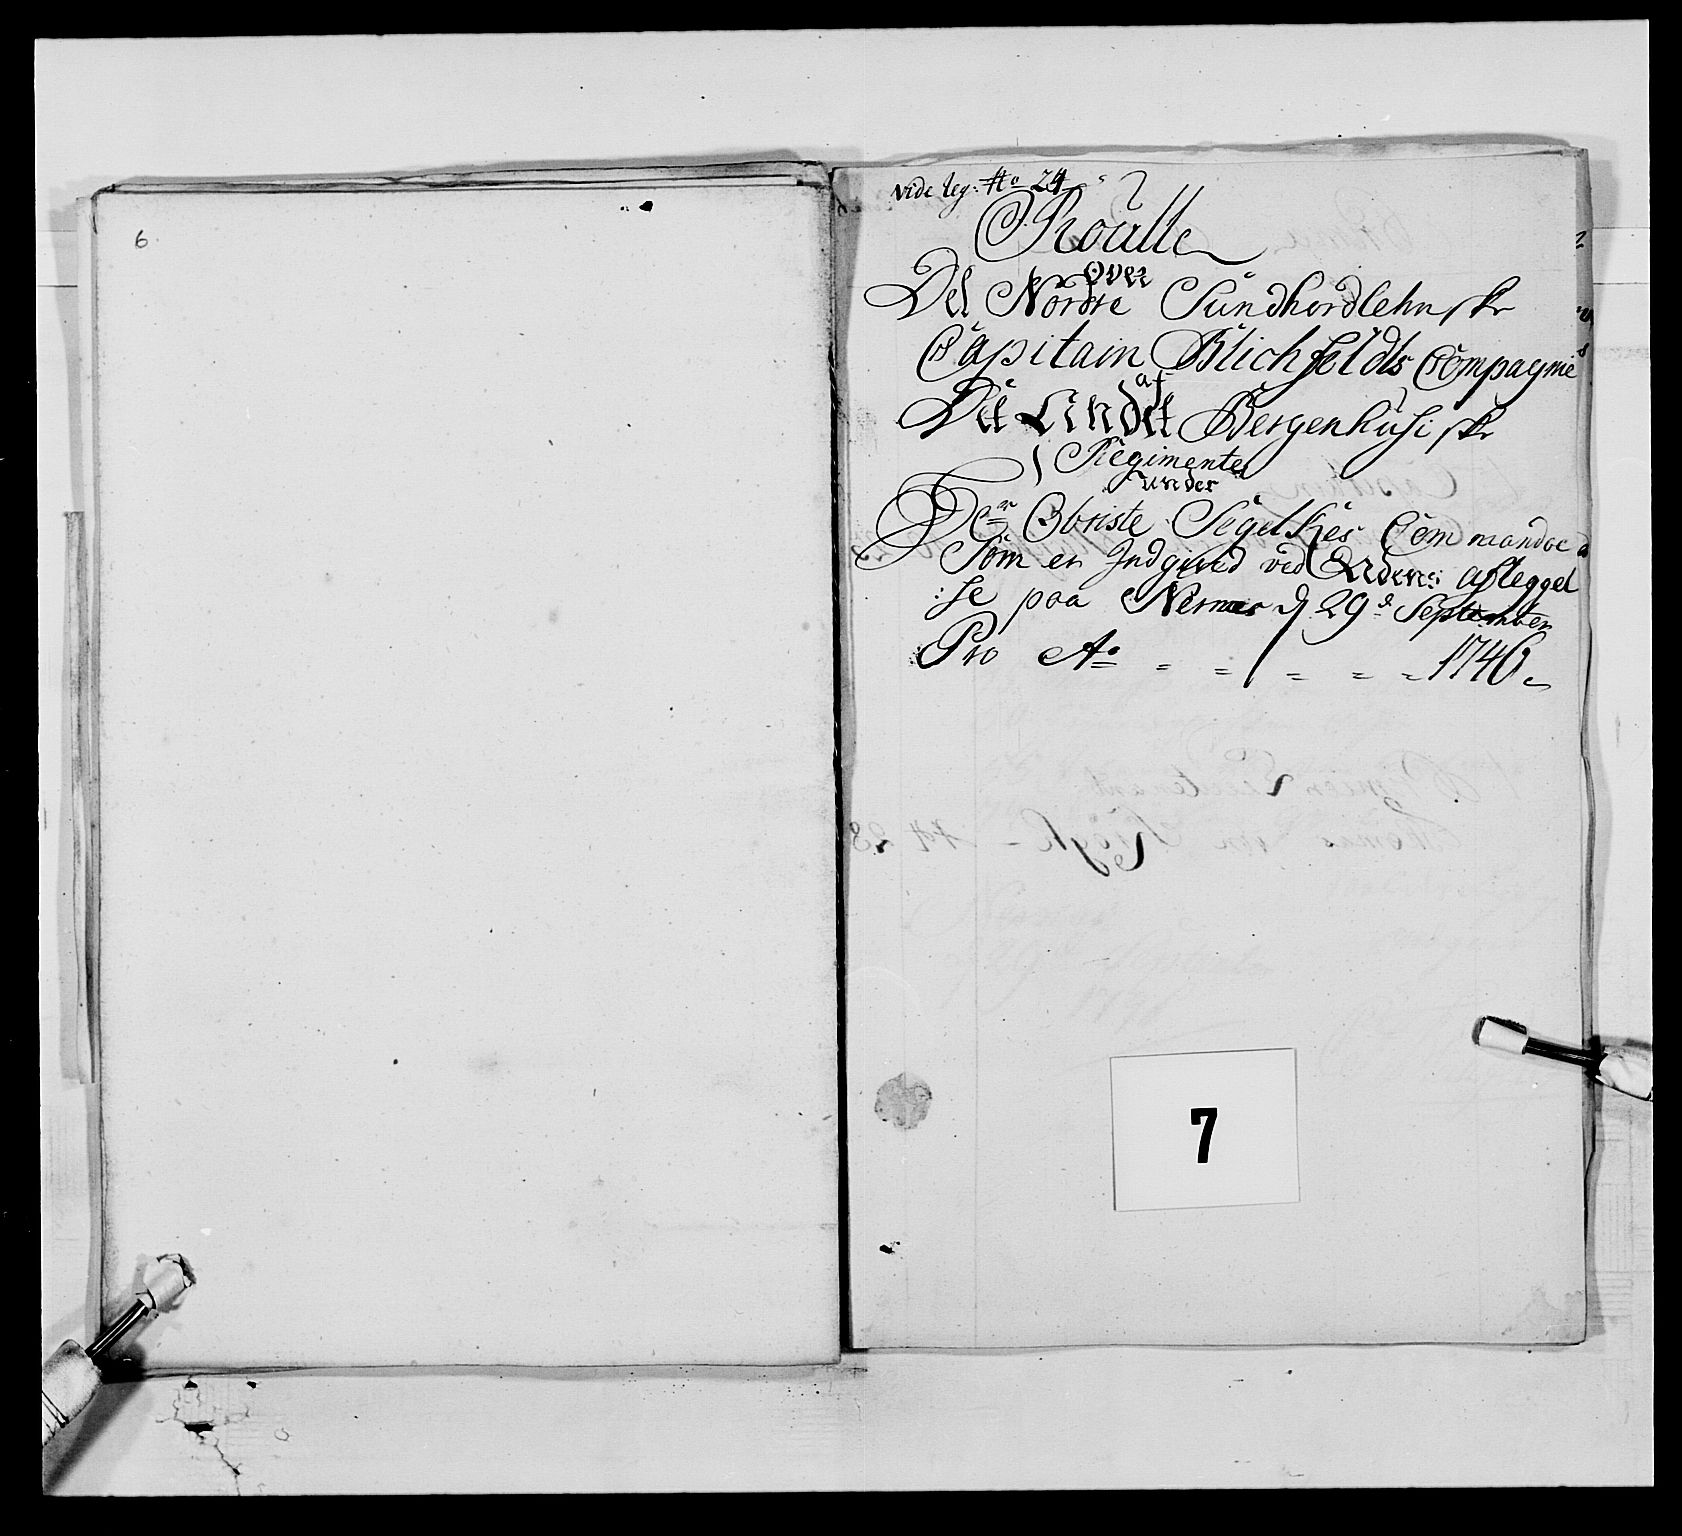 6.
vide leg: No 24
Roulle
over
Det Nordre Sundhordlehnske
Capitain Blichfeldts Compagnie
af
Det Andet Bergenhusiske
Regimente
under
Hr Obriste Segelkes Commando
Som er Indgived ved Edens afleggel
:se paa Nernes d 29de September
Pro Ao = = = = = 1746
7